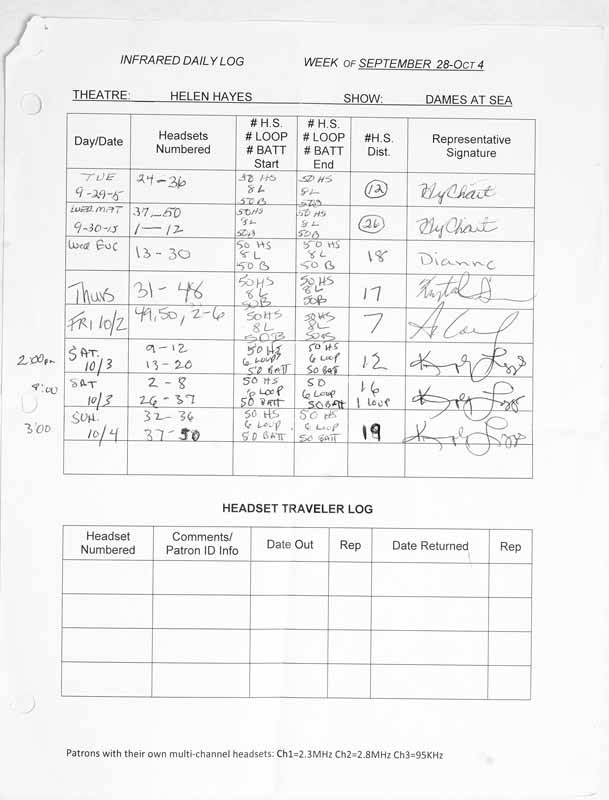 INFRARED DAILY LOG WEEK OF SEPTEMBER 28-OCT 4
THEATRE: HELEN HAYES SHOW: DAMES AT SEA
Day/Date Headsets Numbered # H.S. # LOOP # BATT Start # H.S. # LOOP # BATT End #H.S. Dist. Representative Signature
TUE 9-29-15 24-36 50 HS 8L 50B 50 HS 8L 50B 12
WED. MAT 9-30-15 37-50 1-12 50HS 8L 50B 50HS 8L 50B 26
Wed EVE 13-30 50 HS 8L 50B 50 HS 8L 50B 18 Dianne
Thurs 31-48 50HS 8L 50B 50HS 8L 50B 17
FRI 10/2 49,50, 2-6 50HS 8L 50B 50HS 8L 50B 7
2:00pm SAT. 10/3 9-12 13-20 50 HS 6 LOOP 50 BATT 50 HS 6 LOOP 50 BATT 12
8:00 SAT 10/3 2-8 26-37 50 HS 6 LOOP 50 BATT 50 6 LOOP 50 BATT 16 1 LOOP
3:00 SUN. 10/4 32-36 37-50 50 HS 6 LOOP 50 BATT 50 HS 6 LOOP 50 BATT 19
HEADSET TRAVELER LOG
Headset Numbered Comments/ Patron ID Info Date Out Rep Date Returned Rep
Patrons with their own multi-channel headsets: Ch1=2.3MHz Ch2=2.8MHz Ch3=95KHz